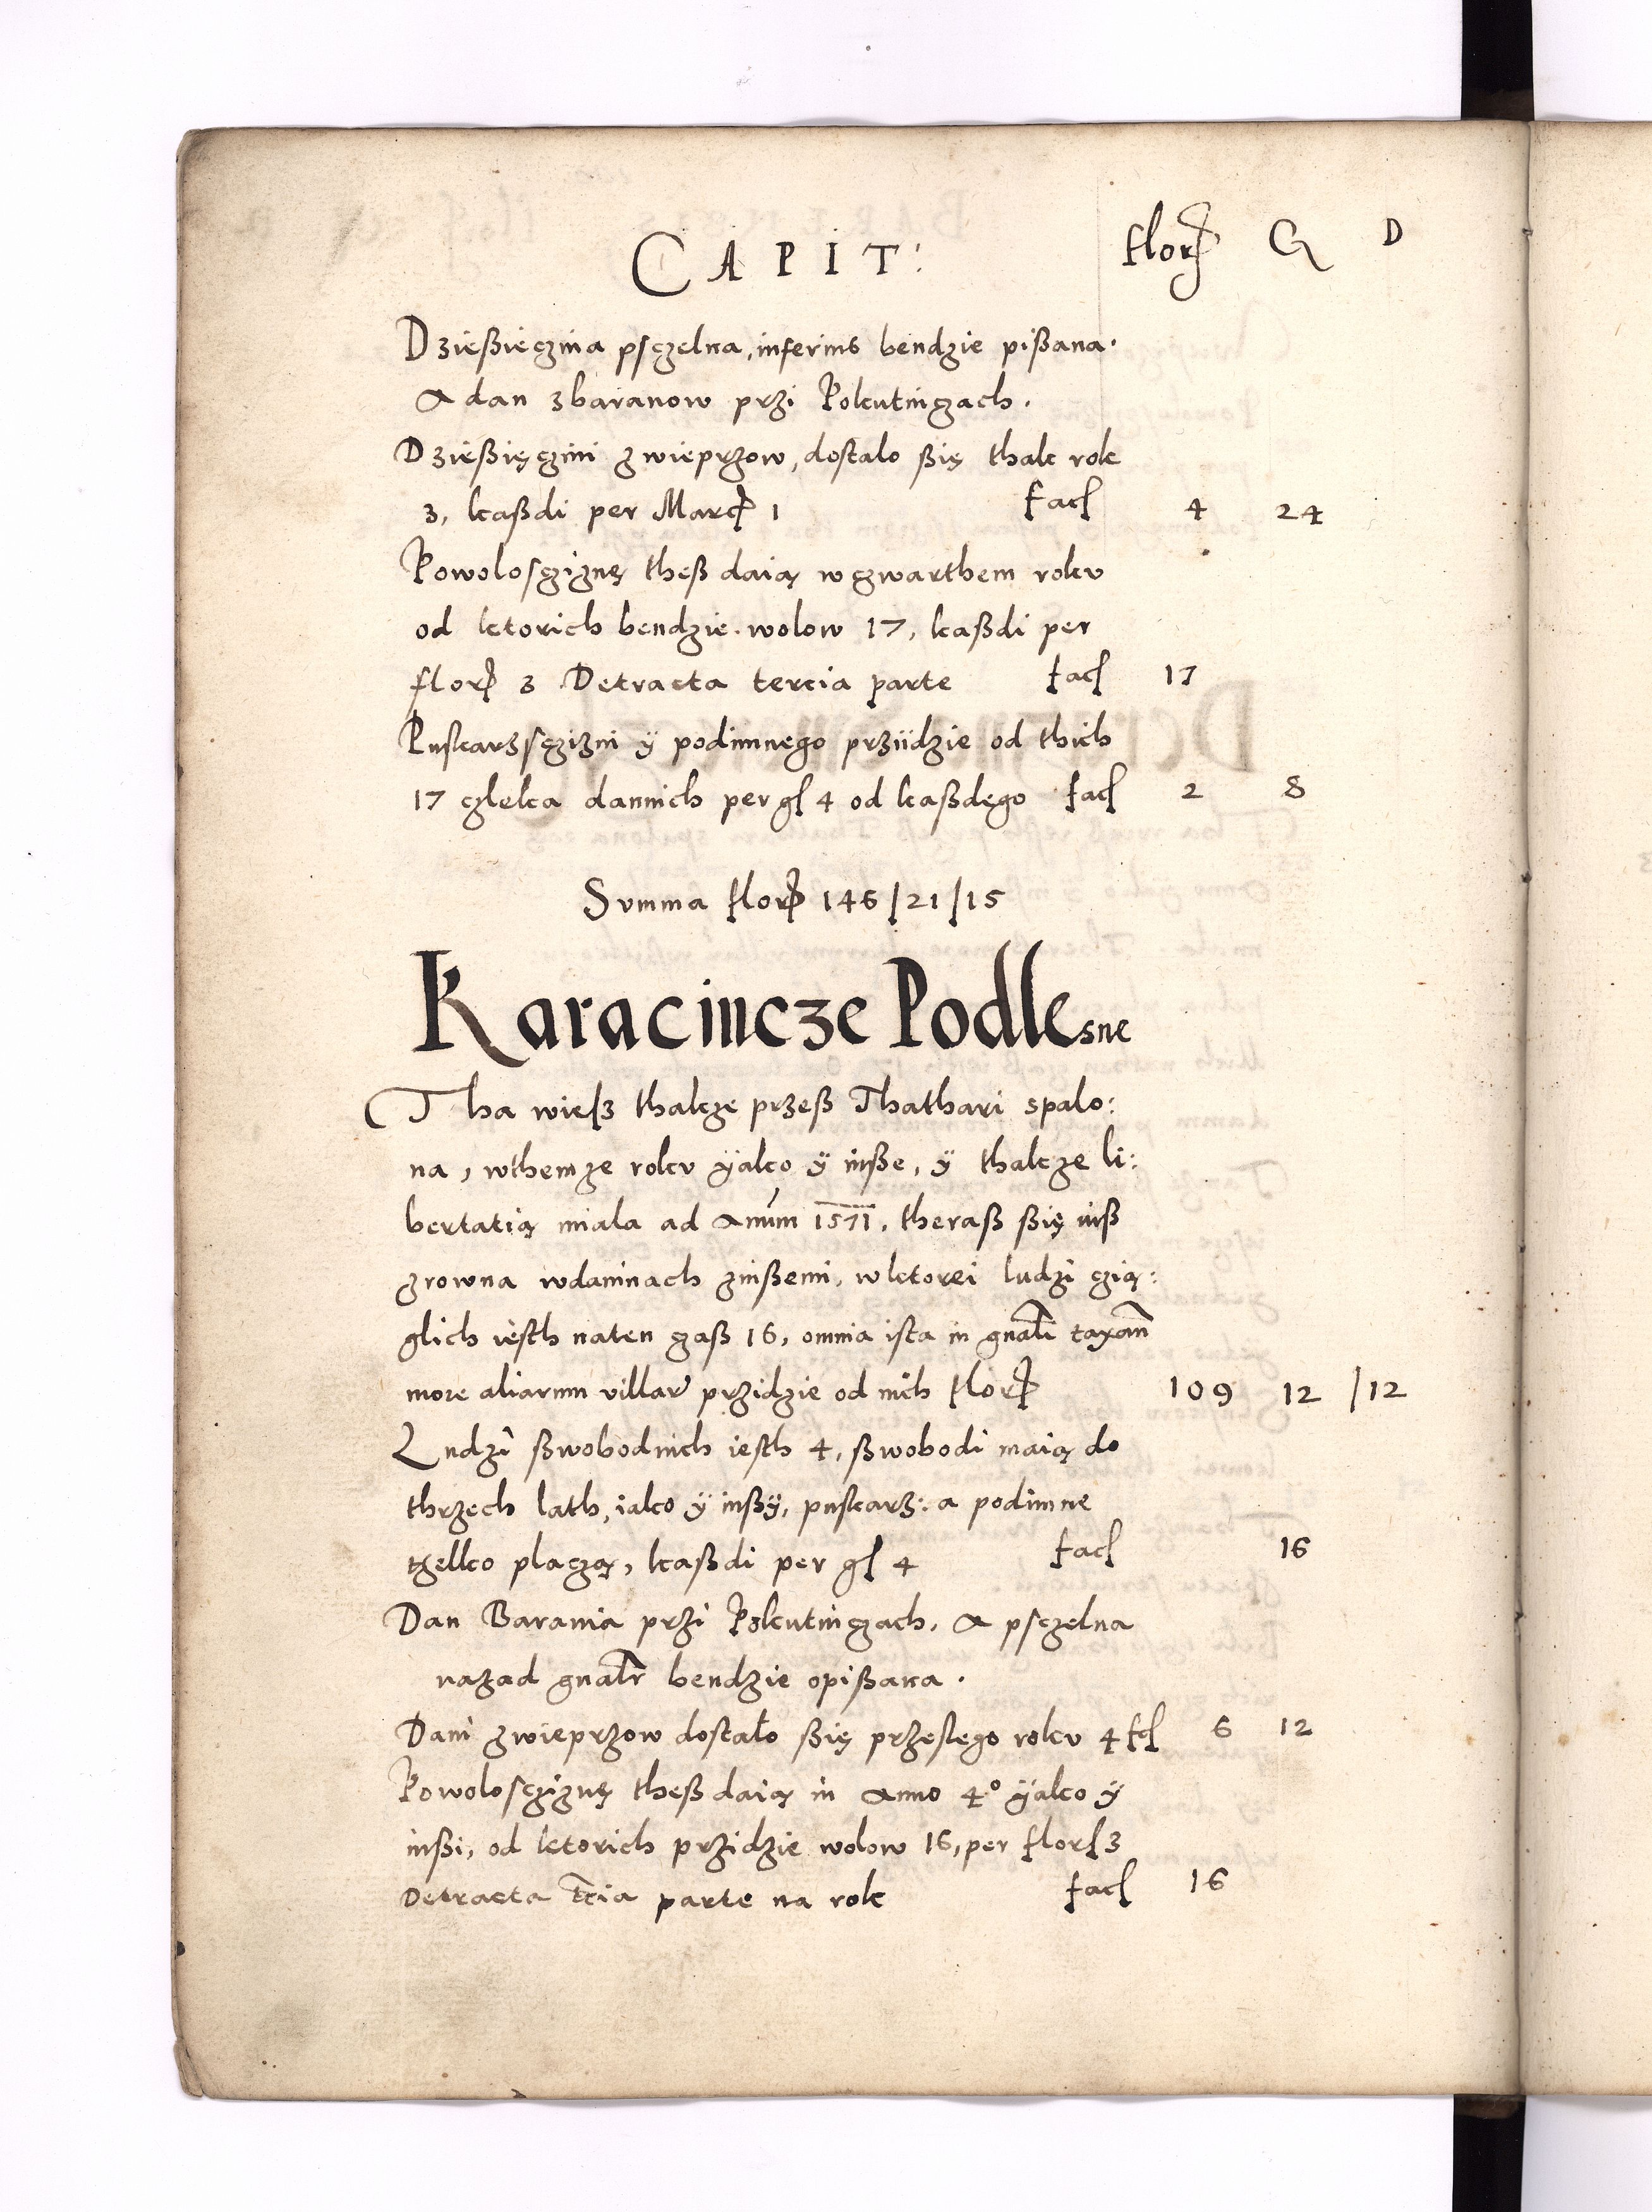 CAPIT: flor G D
Dzießięczina psczelna, inferius bendzie pißana.
A dan zbaranow przi Pokutinczach.
Dzießięczini zwieprzow, dostalo ßię thak rok
3, kaßdi per Marc 1 fac 4 24
Powoloscziznę theß daią w czwarthem roku
od ktorich bendzie wolow 17, kaßdi per
flor 3 Detracta tercia parte fac 17
Puskarzsczizni ÿ podimnego prziidzie od thich
17 czleka dannich per g 4 od kaßdego fac 2 8
Summa flor 146/21/15
Karacincze Podlesne
Tha wiesz thakze przeß Thathari spalo:
na, wthemze roku ÿako ÿ inße, ÿ thakze li:
bertatią miala ad Annum 1571, theraß ßię iuß
zrowna wdaninach zinßemi, wktorei ludzi czią:
glich iesth naten czaß 16, omnia ista in gnali taxam
more aliarum villar przidzie od nich flor 109 12 /12
Ludzi ßwobodnich iesth 4, ßwobodi maią do
thrzech lath, iako ÿ inßÿ, puskarz: a podimne
tzelko placzą, kaßdi per g 4 fac 16
Dan Barania przi Pokutinczach, A psczelna
nazad gnalr bendzie opißana.
Dani zwieprzow dostalo ßię przeslego roku 4 fc 6 12
Powolosczizną theß daią in Anno 4° ÿako ÿ
inßi, od ktorich przidzie wolow 16, per flor 3
Detracta tcia parte na rok fac 16